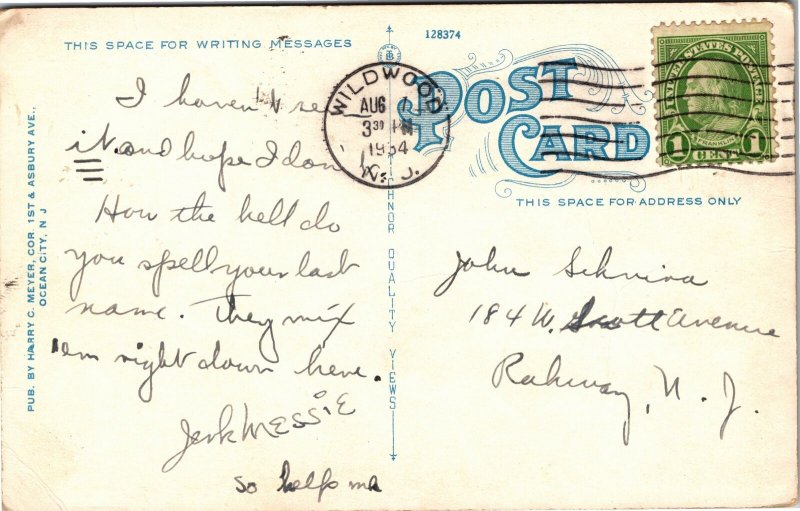 THIS SPACE FOR WRITING MESSAGES
128374
POST CARD
WILDWOOD
AUG 1
3 30 PM
1934
N. J.
UNITED STATES POSTAGE
FRANKLIN
1 CENT 1
THIS SPACE FOR ADDRESS ONLY
PUB. BY HARRY C. MEYER, COR. 1ST & ASBURY AVE.,
OCEAN CITY, N J
QUALITY VIEWS
I haven't se
it. and hope I don't
How the hell do
you spell your last
name. They mix
'em right down here.
Jerk MESSIE
so helps me
John Schvira
184 W. Scott Avenue
Rahway, N. J.